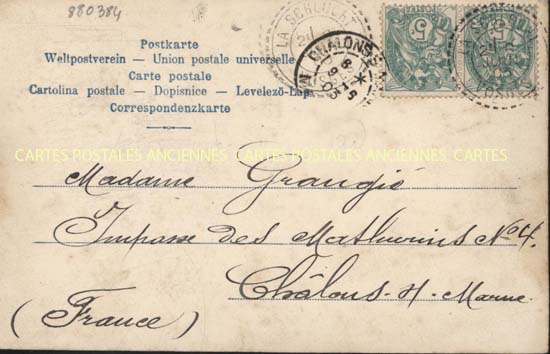 880384
Postkarte
Weltpostverein — Union postale universelle
Carte postale
Cartolina postale — Dopisnice — Levelező-Lap
Correspondenzkarte
LA SCHLUCHT
CHALONS S M
5
LA SCHLUCHT
CARTES POSTALES ANCIENNES CARTES POSTALES ANCIENNES CARTES
Madame Grangié
Impasse des Mathurins No 4.
Châlons s/ Marne
(France)